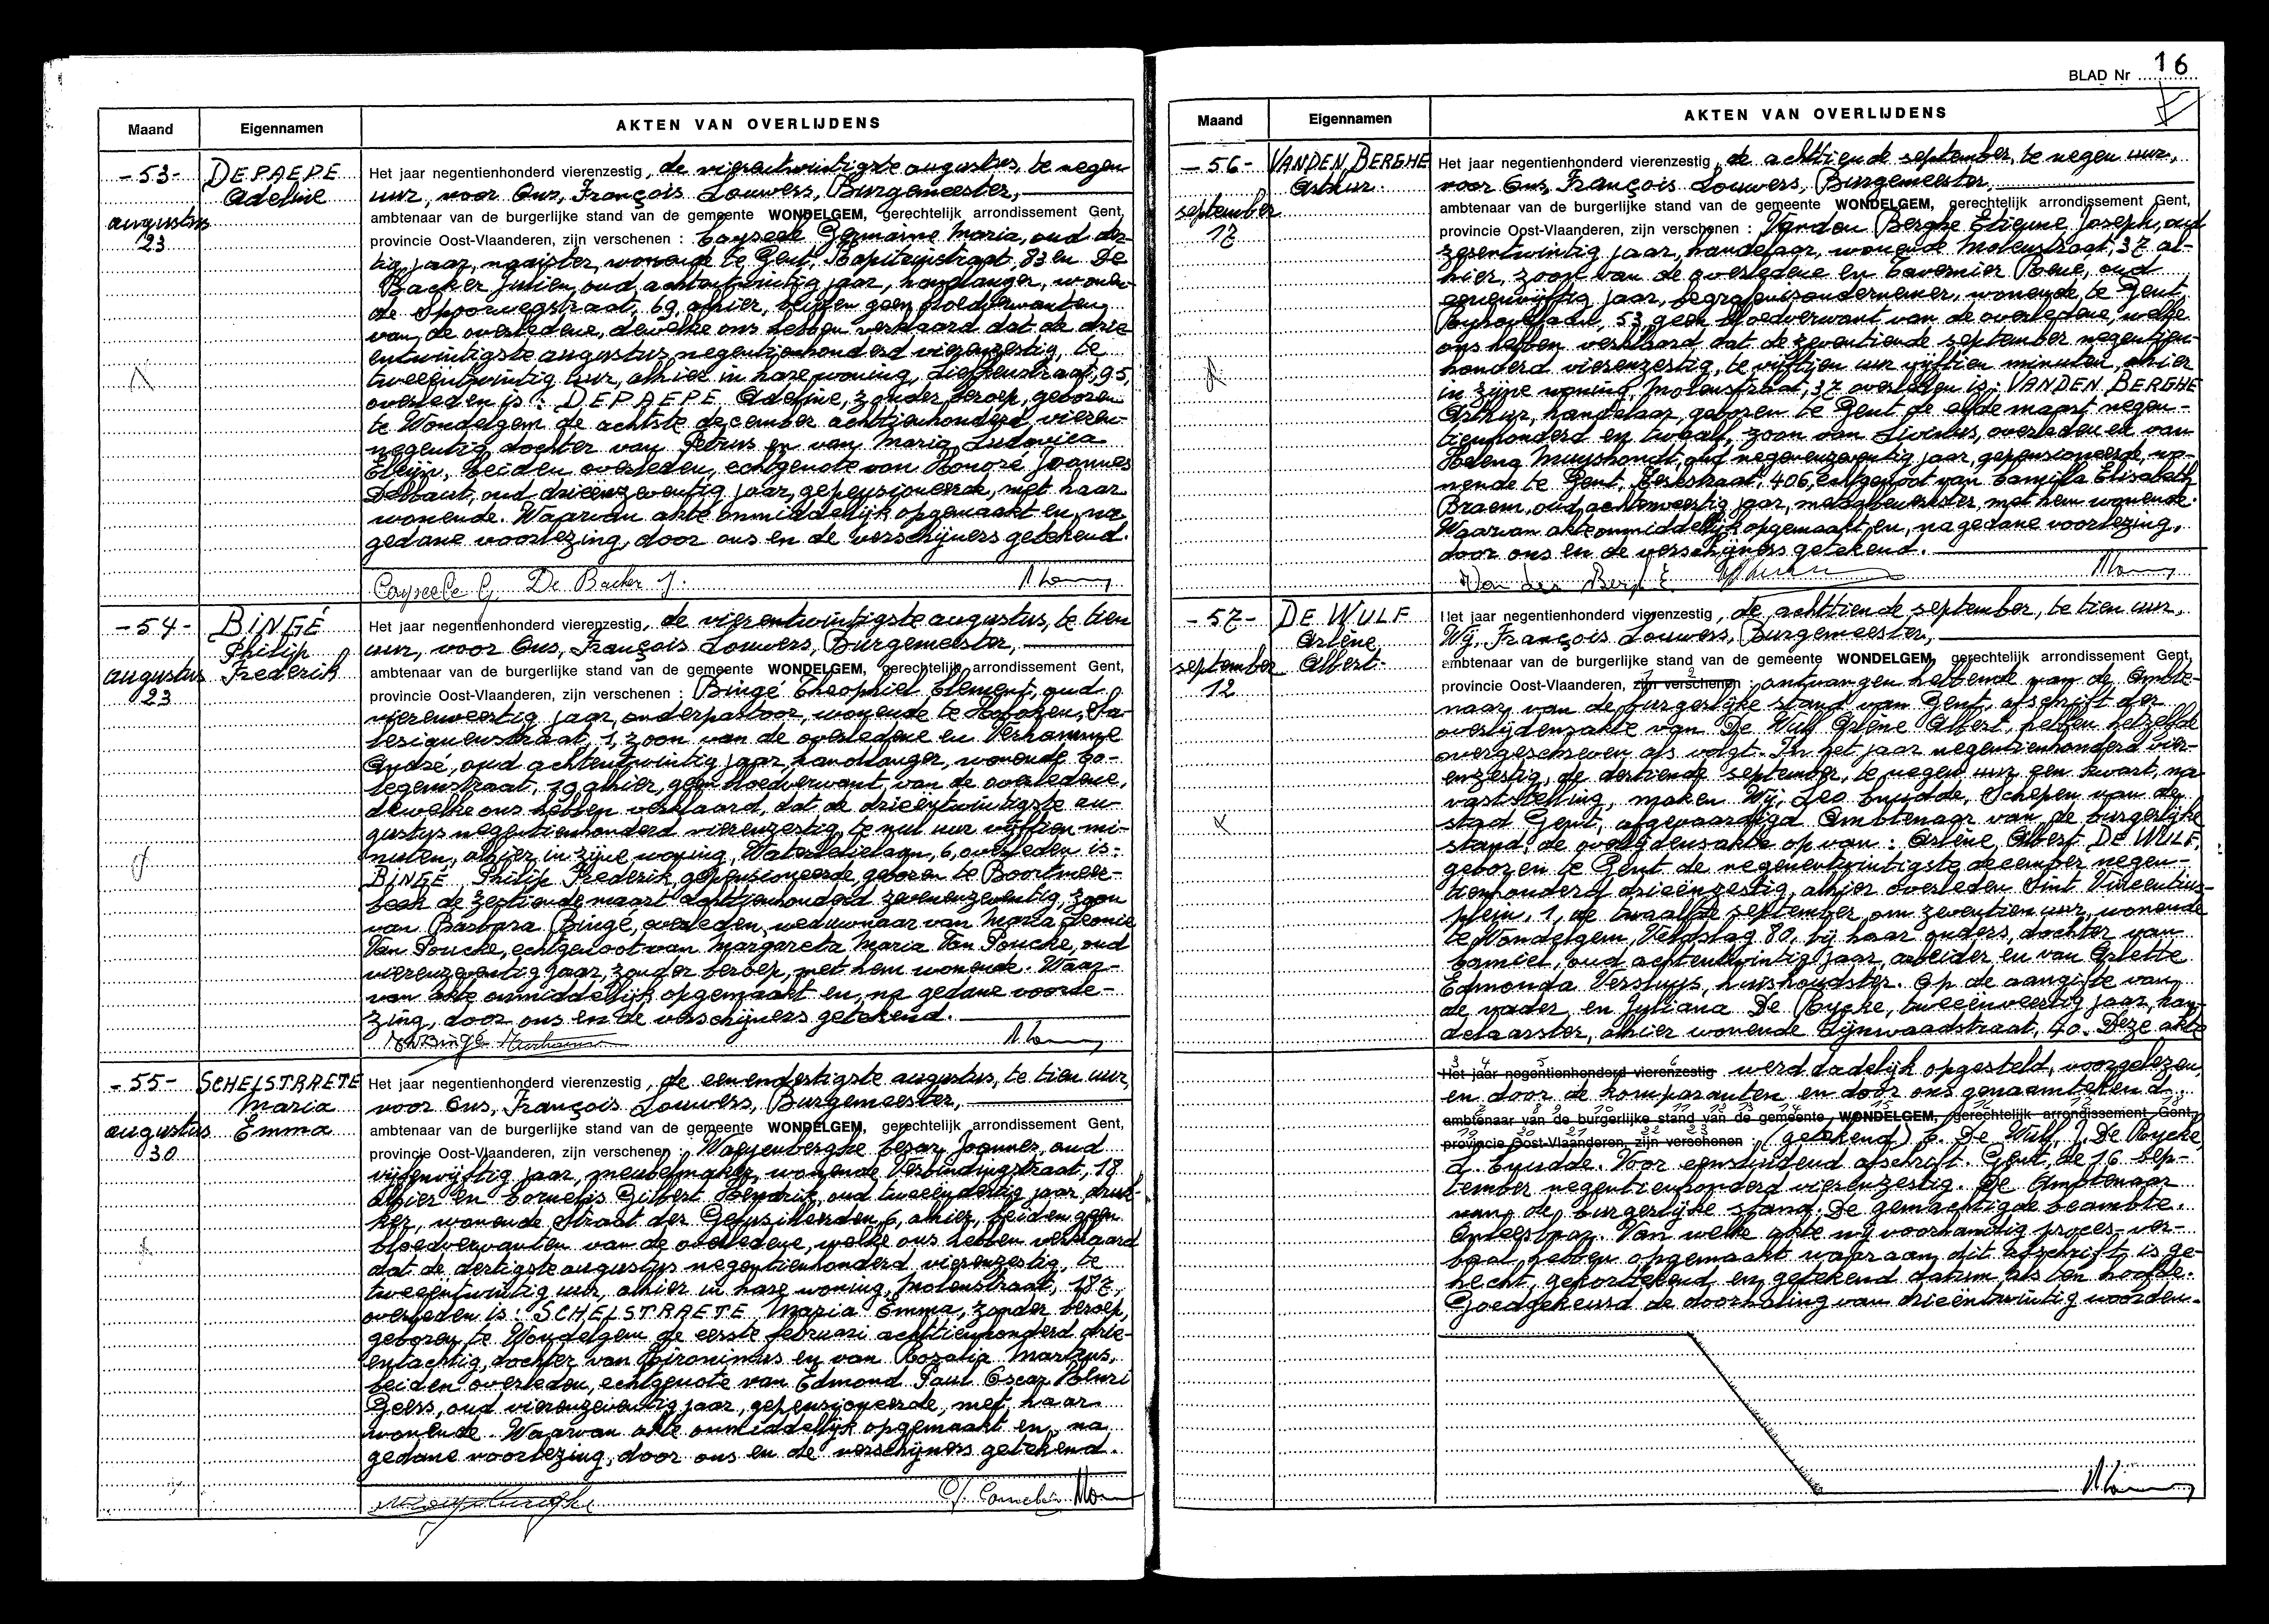 Maand
Eigennamen
AKTEN VAN OVERLIJDENS
- 53 -
DEPAEPE
Adeline
augustus
23
Het jaar negentienhonderd vierenzestig, de vierentwintigste augustus, te negen
uur, voor Ons, François Louwers, Burgemeester,
ambtenaar van de burgerlijke stand van de gemeente WONDELGEM, gerechtelijk arrondissement Gent,
provincie Oost-Vlaanderen, zijn verschenen : Germaine Maria, oud der-
tig jaar, naaister, wonende te Gent, 83 en De
Backer Julien, oud achtentwintig jaar, handlanger, wonen-
de Spoorwegstraat, 69, alhier, beiden geen bloedverwanten
van de overledene, dewelke ons hebben verklaard dat de drie-
entwintigste augustus negentienhonderd vierenzestig, te
tweeëntwintig uur, alhier in hare woning, 95,
overleden is: DEPAEPE Adeline, zonder beroep, geboren
te Wondelgem de achtste december achttienhonderd vieren-
negentig, dochter van Petrus en van Maria Ludovica
beiden overleden, echtgenote van Honoré Joannes
oud drieënzeventig jaar, gepensioneerde, met haar
wonende. Waarvan akte onmiddelijk opgemaakt en, na
gedane voorlezing, door ons en de verschijners getekend.
De Backer J.
- 54 -
BINGÉ
Philip
Frederik
augustus
23
Het jaar negentienhonderd vierenzestig, de vierentwintigste augustus, te tien
uur, voor Ons, François Louwers, Burgemeester,
ambtenaar van de burgerlijke stand van de gemeente WONDELGEM, gerechtelijk arrondissement Gent,
provincie Oost-Vlaanderen, zijn verschenen : Bingé Theophiel Clement, oud
vierenveertig jaar, onderpastoor, wonende te Hoboken, Sa-
lesianenstraat, 1, zoon van de overledene en Verhamme
André, oud achtentwintig jaar, handlanger, wonende
19 alhier, geen bloedverwant van de overledene,
dewelke ons hebben verklaard, dat de drieëntwintigste au-
gustus negentienhonderd vierenzestig, te nul uur vijftien mi-
nuten, alhier in zijne woning, 6, overleden is:
BINGÉ Philip Frederik, gepensioneerde, geboren te Boortmeer-
beek de zestiende maart achttienhonderd zevenenzeventig, zoon
van Barbara Bingé, overleden, weduwnaar van Maria Leonie
Van Poucke, echtgenoot van Margareta Maria Van Poucke, oud
vierenzeventig jaar, zonder beroep, met hem wonende. Waar-
van akte onmiddelijk opgemaakt en, na gedane voorle-
zing, door ons en de verschijners getekend.
Bingé
- 55 -
SCHELSTRAETE
Maria
Emma
augustus
30
Het jaar negentienhonderd vierenzestig, de eenendertigste augustus, te tien uur,
voor Ons, François Louwers, Burgemeester,
ambtenaar van de burgerlijke stand van de gemeente WONDELGEM, gerechtelijk arrondissement Gent,
provincie Oost-Vlaanderen, zijn verschenen : Waeyenberghe Cezar Joannes, oud
vijfenvijftig jaar, meubelmaker, wonende Verbindingstraat, 18
alhier en Cornelis Gilbert Hendrik, oud tweeëndertig jaar, druk-
ker, wonende Straat der Gefusilleerden, 6, alhier, beiden geen
bloedverwanten van de overledene, welke ons hebben verklaard
dat de dertigste augustus negentienhonderd vierenzestig, te
tweeëntwintig uur, alhier in hare woning, Molenstraat, 187,
overleden is: SCHELSTRAETE Maria Emma, zonder beroep,
geboren te Wondelgem de eerste februari achttienhonderd drie-
entachtig, dochter van en van Rozalia Martens,
beiden overleden, echtgenote van Edmond Paul Oscar Henri
Geers, oud vierenzeventig jaar, gepensioneerde, met haar
wonende. Waarvan akte onmiddelijk opgemaakt en, na
gedane voorlezing, door ons en de verschijners getekend.
G. Cornelis
BLAD Nr 16
Maand
Eigennamen
AKTEN VAN OVERLIJDENS
- 56 -
VANDEN BERGHE
Arthur
september
17
Het jaar negentienhonderd vierenzestig, de achttiende september, te negen uur,
voor Ons, François Louwers, Burgemeester,
ambtenaar van de burgerlijke stand van de gemeente WONDELGEM, gerechtelijk arrondissement Gent,
provincie Oost-Vlaanderen, zijn verschenen : Vanden Berghe Etienne Joseph, oud
zesentwintig jaar, handelaar, wonende Molenstraat, 37 al-
hier, zoon van de overledene en Tavernier oud
jaar, begrafenisondernemer, wonende te Gent,
53, geen bloedverwant van de overledene, welke
ons hebben verklaard dat de zeventiende september negentien-
honderd vierenzestig, te vijftien uur vijftien minuten, alhier
in zijne woning, Molenstraat, 37 overleden is: VANDEN BERGHE
Arthur, handelaar, geboren te Gent de elfde maart negen-
tienhonderd en twaalf, zoon van Livinus, overleden en van
Helena Muyshondt, oud negenenzeventig jaar, gepensioneerde, wo-
nende te Gent, 406, echtgenoot van Camilla Elisabeth
Braem, oud achtenveertig jaar, met hem wonende.
Waarvan akte onmiddelijk opgemaakt en, na gedane voorlezing,
door ons en de verschijners getekend.
Van den Bergh E.
- 57 -
DE WULF
Arlène
Albert
september
12
Het jaar negentienhonderd vierenzestig, de achttiende september, te tien uur,
Wij, François Louwers, Burgemeester,
ambtenaar van de burgerlijke stand van de gemeente WONDELGEM, gerechtelijk arrondissement Gent,
1 2
provincie Oost-Vlaanderen, zijn verschenen : ontvangen hebbende van de Ambte-
naar van de burgerlijke stand van Gent, afschrift der
overlijdensakte van De Wulf Arlène Albert, hebben hetzelfde
overgeschreven als volgt. In het jaar negentienhonderd vier-
enzestig, de dertiende september, te negen uur een kwart, na
vaststelling, maken Wij, Leo Cnudde, Schepen van de
stad Gent, afgevaardigd Ambtenaar van de burgerlijke
stand, de overlijdensakte op van: Arlène, Albert DE WULF,
geboren te Gent de negenentwintigste december negen-
tienhonderd drieënzestig, alhier overleden Sint Vincentius-
plein, 1, de twaalfde september, om zeventien uur, wonende
te Wondelgem, Veldslag 80, bij haar ouders, dochter van
Camiel, oud achtentwintig jaar, arbeider en van Arlette
Edmonda Versluys, huishoudster. Op de aangifte van
de vader, en Juliana De Rycke, tweeënveertig jaar, han-
delaarster, alhier wonende Lijnwaadstraat, 40. Deze akte
3 4 5 6
Het jaar negentienhonderd vierenzestig werd dadelijk opgesteld, voorgelezen,
en door de komparanten en door ons genaamtekend.
7 8 9 10 11 12 13 14 15 16 17 18
ambtenaar van de burgerlijke stand van de gemeente WONDELGEM, gerechtelijk arrondissement Gent,
19 20 21 22 23
provincie Oost-Vlaanderen, zijn verschenen : (getekend) C. De Wulf, J. De Rycke,
L. Cnudde. Voor eensluidend afschrift. Gent, de 16 sep-
tember negentienhonderd vierenzestig. De Ambtenaar
van de burgerlijke stand. De gemachtigde beambte.
Onleesbaar. Van welke akte wij voorhandig proces-ver-
baal hebben opgemaakt waaraan dit afschrift is ge-
hecht, gekorttekend en getekend datum als ten hoofde.
Goedgekeurd de doorhaling van drieëntwintig woorden.